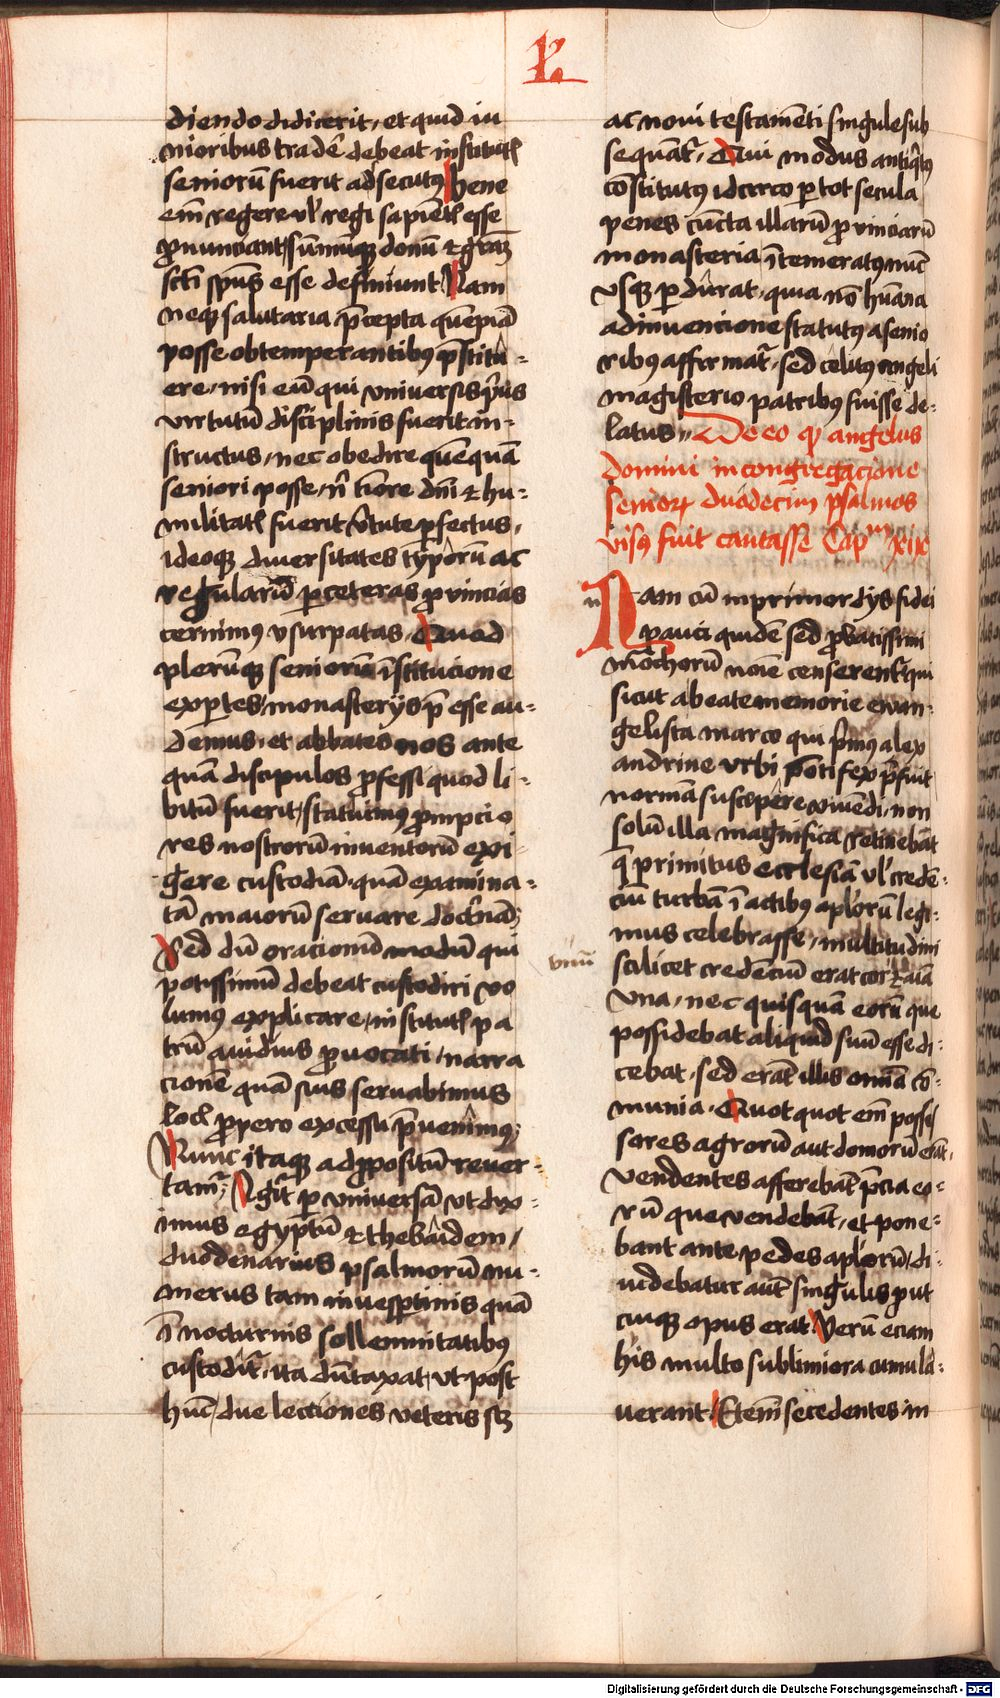 L
diendo didicerit, et quid iu
nioribus tradē debeat institutꝭ
seniorū fuerit adsecutꝰ Bene
em̄ regere vl̓ regi sapiētꝭ esse
ꝓnunciant, sūmūqꝫ donū ⁊ gr̄aꝫ
scī spūs esse definiunt Nam
neqꝫ salutaria p̄cepta quēpiā
posse obtemperantibꝰ p̄stitu-
ere, nisi eū qui vniuersis pͥus
virtutū disciplinis fuerit in-
structus, nec obedire quēquā
seniori posse, nͥ tīore dnī ⁊ hu-
militatꝭ fuerit v̓tute ꝑfectus,
ideoqꝫ diuersitates typorū ac
regularū ꝑ ceteras ꝓuincias
cernimꝰ vsurpatas. Quod
plerūqꝫ seniorū īstitucione
exꝑtes, monasterijs p̄esse au-
demus, et abbates nos ante
quā discipulos ꝓfessi quod li-
bitū fuerit, statuimꝰ ꝓmpcio
res nostrorū inuentorū exi
gere custodiā, quā examina-
tā maiorū seruare doct̓nā;
Sed dū oracionū modū qui
potissimū debeat custodiri vo
lumus explicare, institutꝭ pa
trū auidius ꝓuocati, narra
cionē quā suis seruabimus
locꝭ ꝓpero excessu p̄uenimꝰ;
Nunc itaqꝫ ad ꝓpositū reuer-
tam̄; Agit̓ ꝑ vniuersā vt dix-
imus egyptū ⁊ thebaidem,
duodenarius psalmorū nu-
merus tam in vesꝑtinis quā
ī nocturnis sollennitatibꝰ
custodit̓, ita dūtaxat, vt post
hūc, due lectiones veteris scꝫ
ac noui testamēti singule sub
sequāt̓. Qui modus antiqͥtꝰ
cōstitutꝰ idcirco ꝑ tot secula
penes cūcta illarū ꝓuinciarū
monasteria ītemeratꝰ nūc
vsqꝫ ꝑdurat, quia nō hūana
adinuencione statutꝰ a senio
ribꝰ affirmat̓, sed celitꝰ angeli
magisterio patribꝰ fuisse de-
latus. De eo qꝫ angelus
domini in congregacione
senioꝝ duodecim psalmos
visꝰ fuit cantasse Capᵐ xix
n Nam cū in primordijs fidei
pauci quidē sed ꝓbatissimi
mōchorū noīe censerent̓, qui
sicut a beate memorie ewan-
gelista marco qui pͥmꝰ alex
andrine vrbi pōtifex p̄fuit
normā suscepere viuendi, non
solū illa magnifica retinebāt
q̄ primitus ecclesiā vl̓ credē-
ciū turbā ī actibꝰ apl̓orū legi-
mus celebrasse, multitudini
vnū
scilicet credēciū erat cor ⁊ aīa
vna, nec quisquā eorū que
possidebat aliquid suū esse di-
cebat, sed erāt illis om̄ia cō-
munia. Quotquot em̄ posses
sores agrorū aut domorū erāt,
vendentes afferebāt p̄cia eo-
rū que vendebāt, et pone-
bant ante pedes apl̓orū, di-
uidebatur aūt singulis ꝓut
cuiqꝫ opus erat. Verū eciam
his multo sublimiora cumula-
uerant. Etem̄ secedentes in
Digitalisierung gefördert durch die Deutsche Forschungsgemeinschaft - DFG